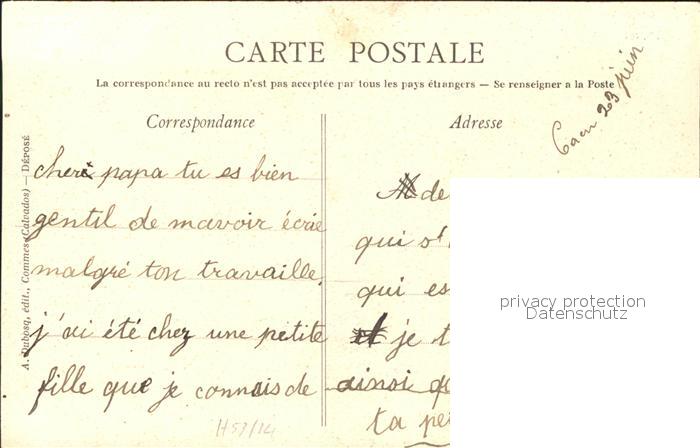 CARTE POSTALE
La correspondance au recto n'est pas acceptée par tous les pays étrangers — Se renseigner a la Poste
Caen 23 juin
Correspondance
cheri papa tu es bien
gentil de mavoir écrie
malgré ton travaille,
j'ai été chez une petite
fille que je connais de
Adresse
de
qui
qui es
je t
ainsi
ta pe
A. Dubosq, édit., Commes (Calvados) — DÉPOSÉ
H53/14
privacy protection
Datenschutz